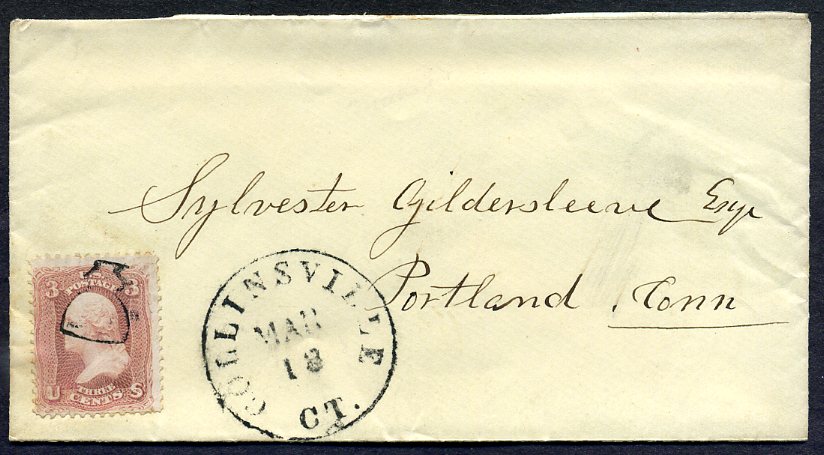 Sylvester Gildersleeve Esqr
Portland, Conn
COLLINSVILLE
MAR
18
CT.
3 U.S. 3
POSTAGE
THREE
U CENTS S